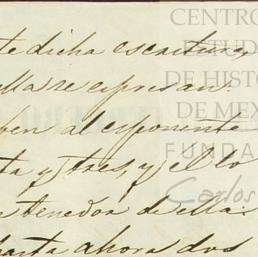 te dicha escritura,
ella se espresan.
ben al esponente
ta y tres, y el lo
tenedor de ella
hasta ahora dos
CENTRO
ESTUD
DE HISTO
DE MEX
FUNDA
Carlos